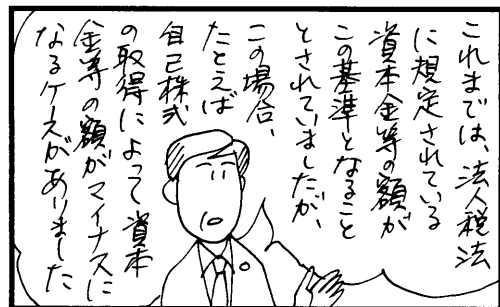 これまでは、法人税法
に規定されている
資本金等の額が
この基準となること
とされていましたが、
この場合、
たとえば
自己株式
の取得によって資本
金等の額がマイナスに
なるケースがありました